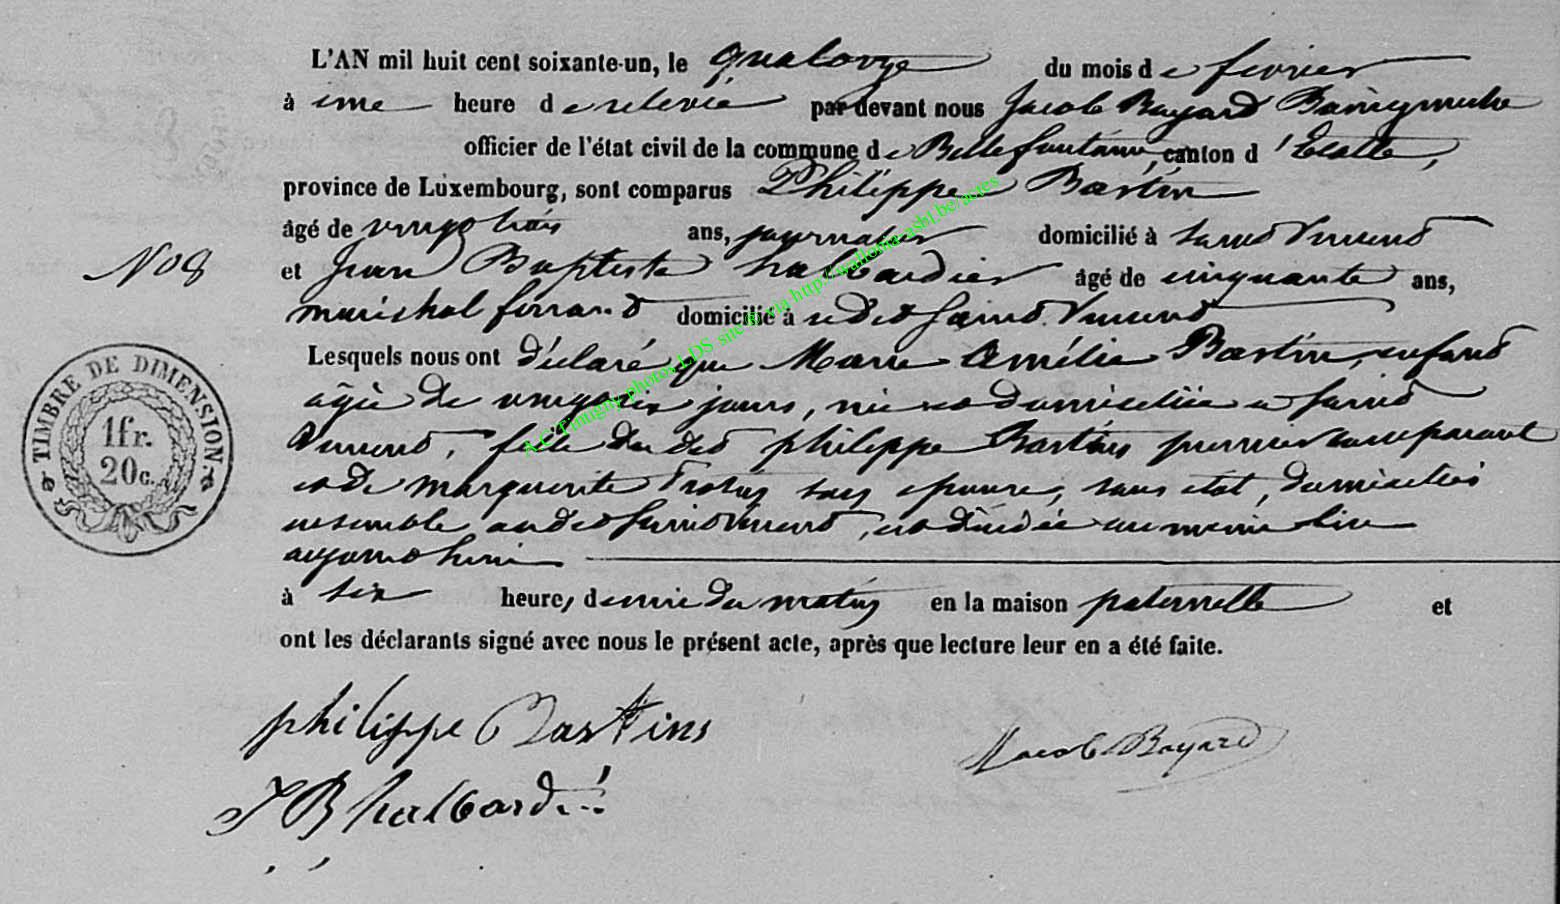 L'AN mil huit cent soixante-un, le quatorze du mois de fevrier
à une heure de relevée par devant nous Jacob Bayard Bourgmestre
officier de l'état civil de la commune de Bellefontaine, canton d'Etalle,
province de Luxembourg, sont comparus Philippe Bastin
âgé de vingt trois ans, journalier domicilié à Saint Vincent
N° 8
et Jean Baptiste halbardier âgé de cinquante ans,
maréchal ferrant domicilié à udit Saint Vincent
Lesquels nous ont déclaré que Marie Amélie Bastin, enfant
âgée de jours, née et domiciliée à Saint
Vincent, fille dudit philippe Bastin premier comparant
et de marguerite son épouse, sans état, domiciliés
ensemble audit Saint Vincent, est décédée au même lieu
aujourd'hui
à six heures, demie du matin en la maison paternelle et
ont les déclarants signé avec nous le présent acte, après que lecture leur en a été faite.
TIMBRE DE DIMENSION.
1fr.
20c.
philippe Bastins
Jacob Bayard
J B halbardié
A.G. Tintigny photos LDS site @ via http://wallonia-asbl.be/actes